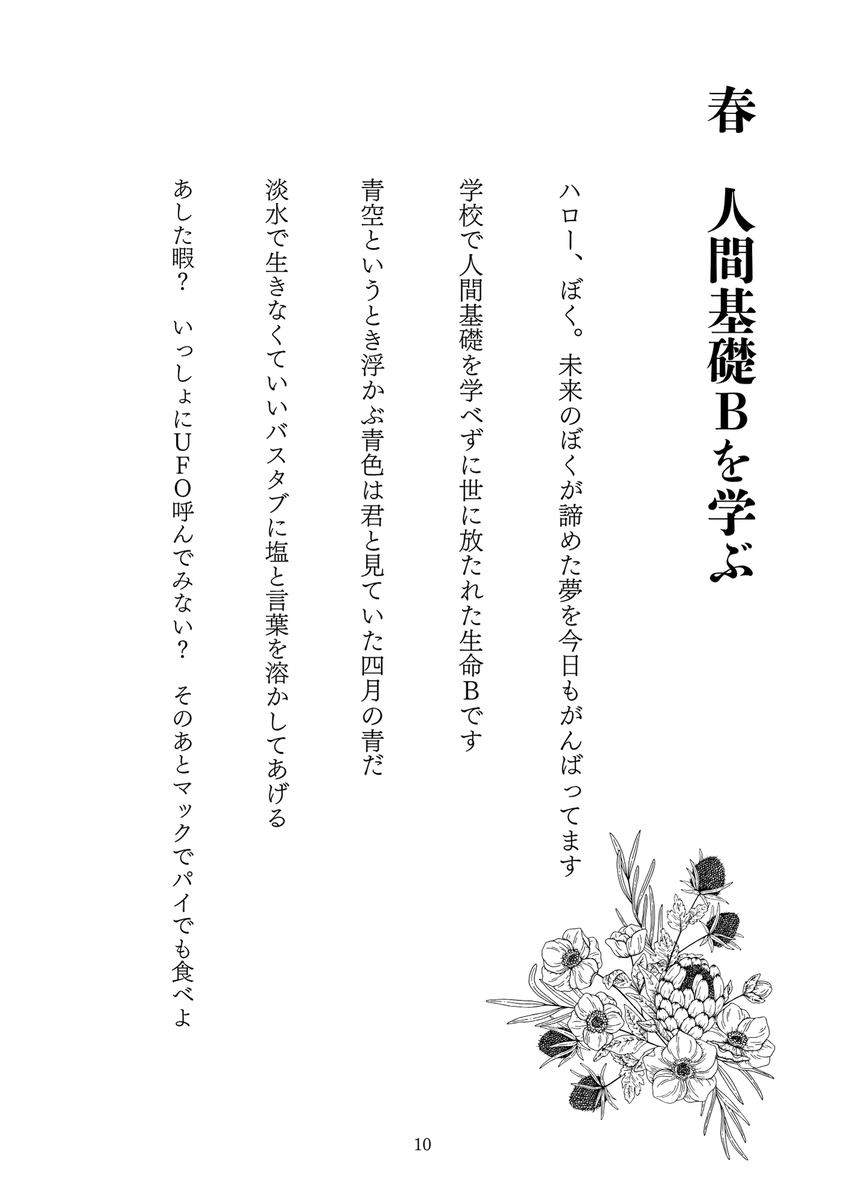 春　人間基礎Bを学ぶ
ハロー、ぼく。未来のぼくが諦めた夢を今日もがんばってます
学校で人間基礎を学べずに世に放たれた生命Bです
青空というとき浮かぶ青色は君と見ていた四月の青だ
淡水で生きなくていいバスタブに塩と言葉を溶かしてあげる
あした暇？　いっしょにUFO呼んでみない？　そのあとマックでパイでも食べよ
10